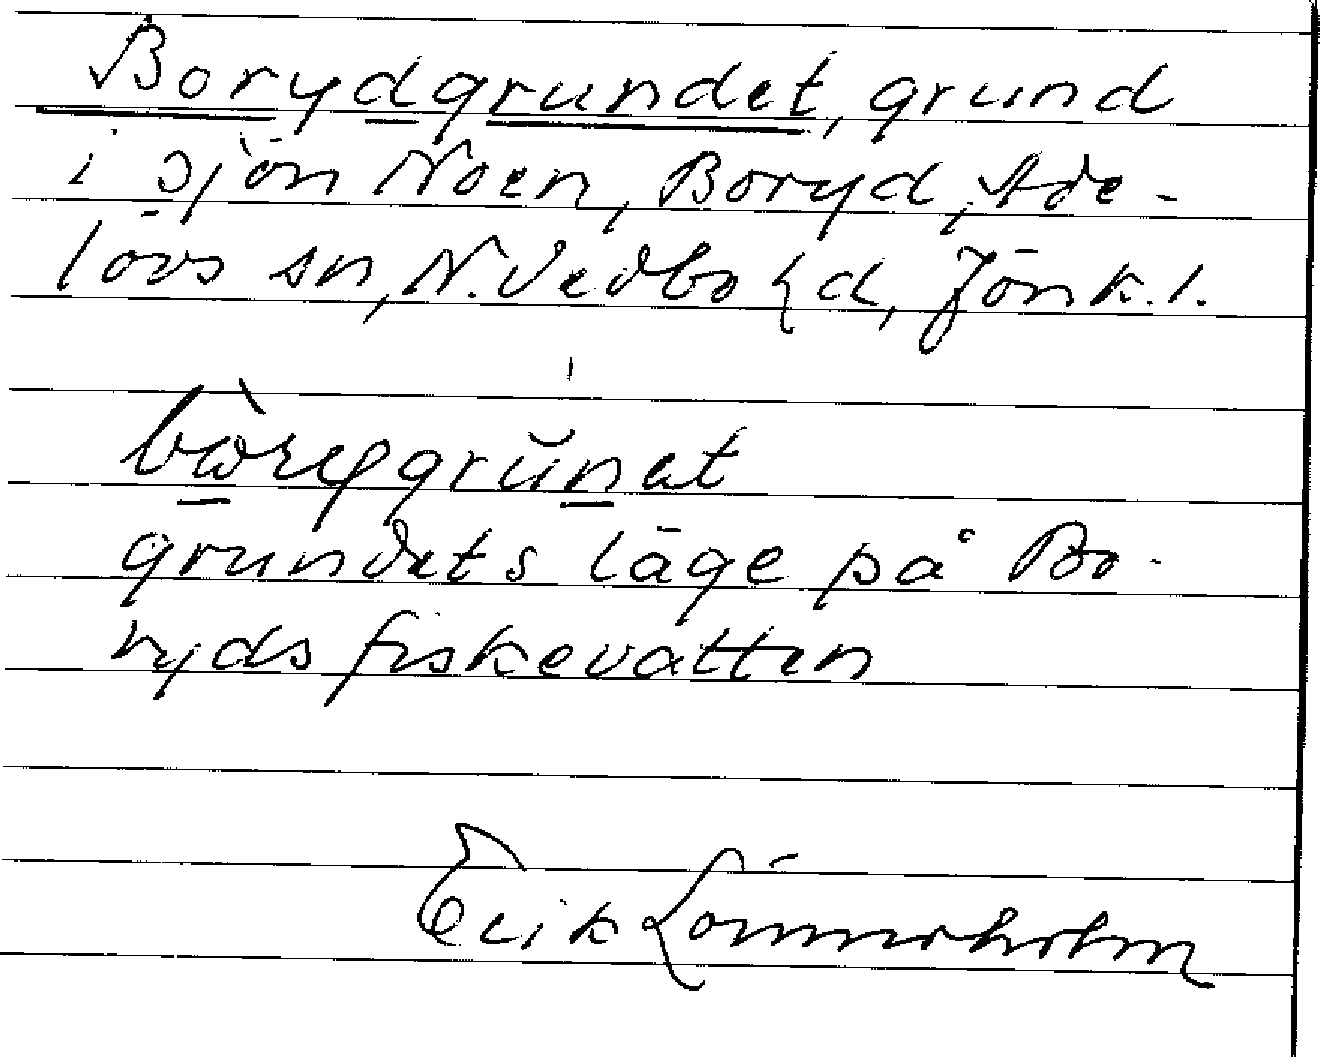 Borydgrundet, grund
i sjön Noen, Boryd, Ade-
lövs sn, N. Vedbo hd, Jönk. l.
grundets läge på Bo-
ryds fiskevatten
Erik Lönnerholm